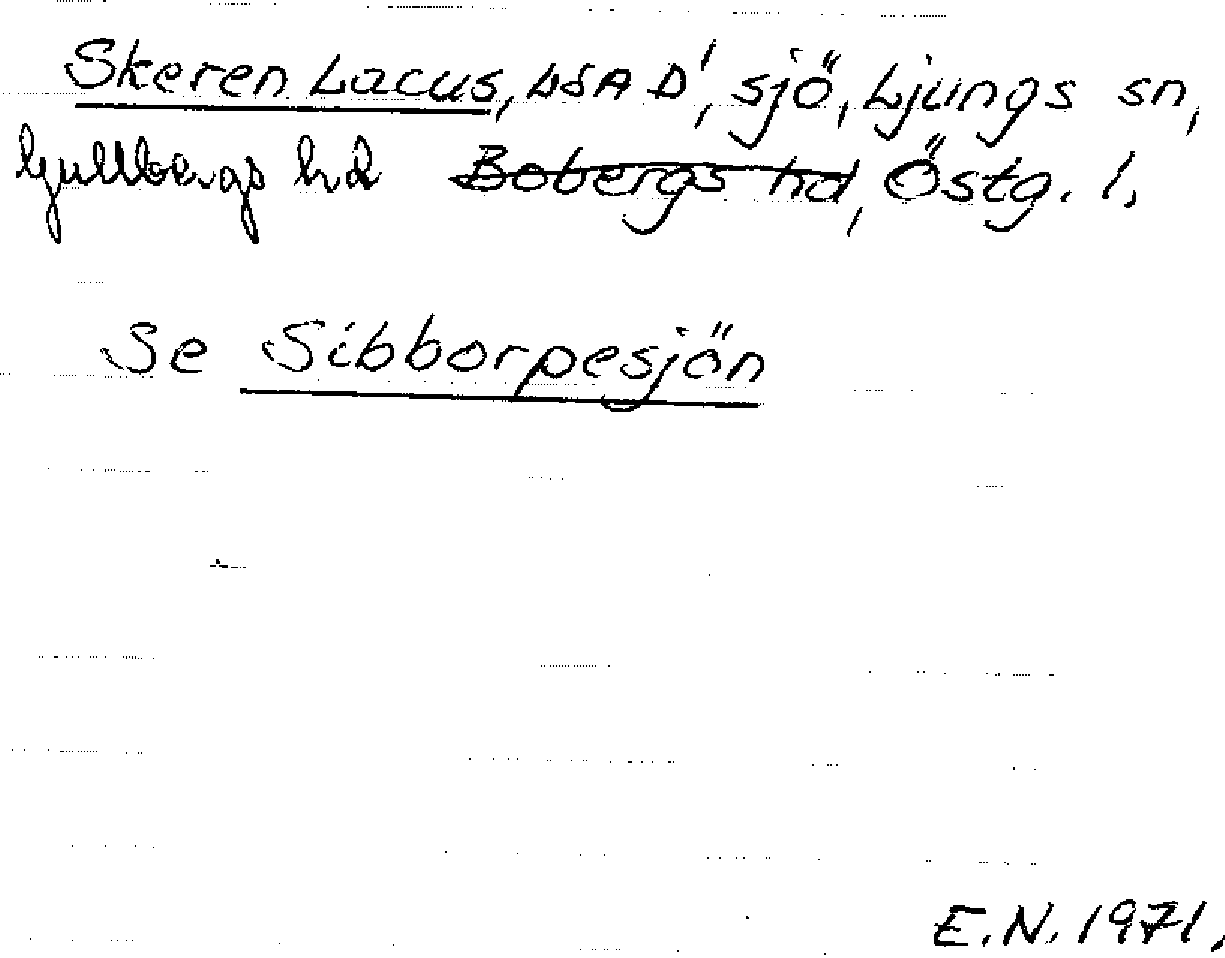 Skeren Lacus, LSA D¹, sjö, Ljungs sn,
Gullbergs hd Bobergs hd, Östg. l.
Se Sibborpesjön
E.N. 1971.